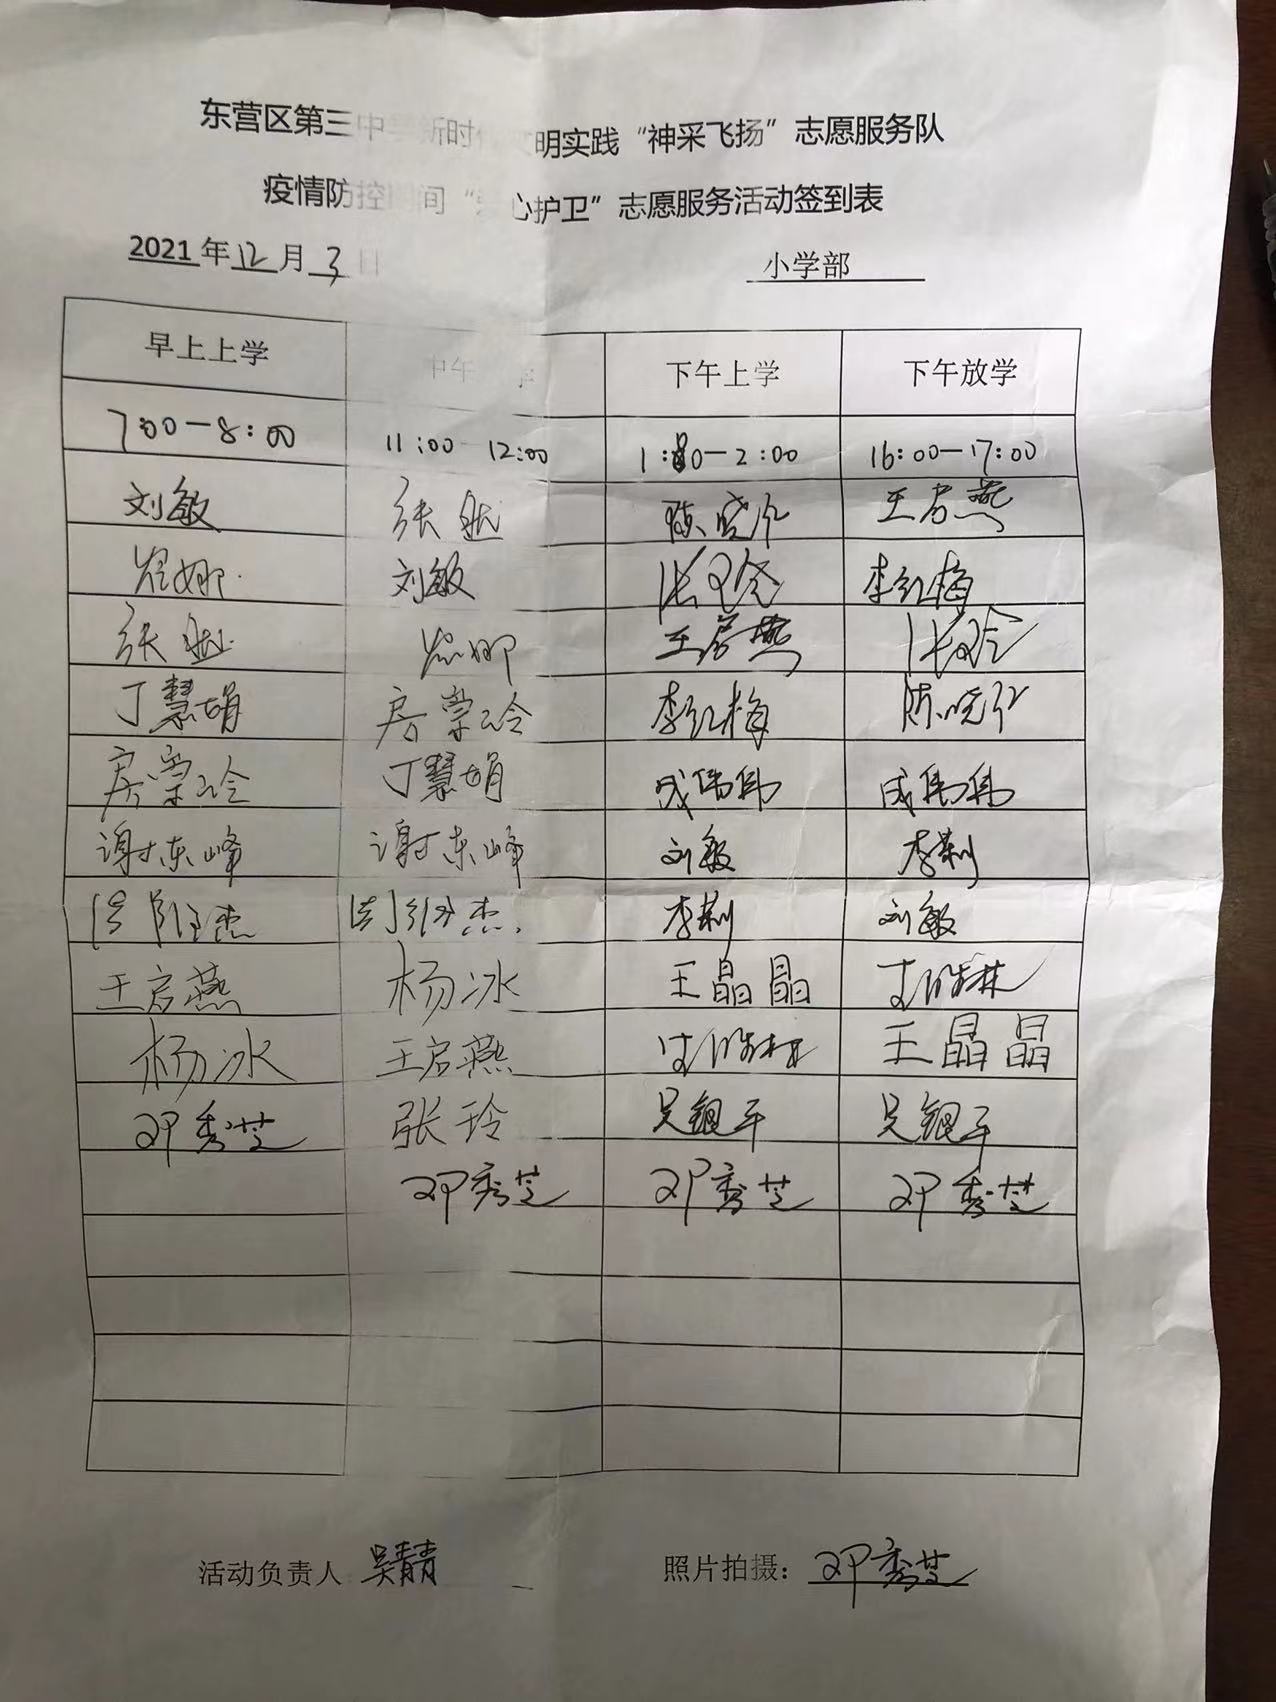 东营区第三中学新时代文明实践“神采飞扬”志愿服务队
疫情防控期间“爱心护卫”志愿服务活动签到表
2021年12月3日 小学部
早上上学 中午 下午上学 下午放学
7:00-8:00 11:00-12:00 1:00-2:00 16:00-17:00
刘敏 张 陈晓 王启燕
崔娜 刘敏 张 李红梅
张 崔娜 王启燕 张
丁慧娟 房荣玲 李红梅 陈晓
房荣玲 丁慧娟 成伟伟 成伟伟
谢东峰 谢东峰 刘敏 李莉
杰 杰 李莉 刘敏
王启燕 杨冰 王晶晶 林
杨冰 王启燕 林 王晶晶
邓秀芝 张玲 吴银平 吴银平
邓秀芝 邓秀芝 邓秀芝
活动负责人 吴青青 照片拍摄：邓秀芝